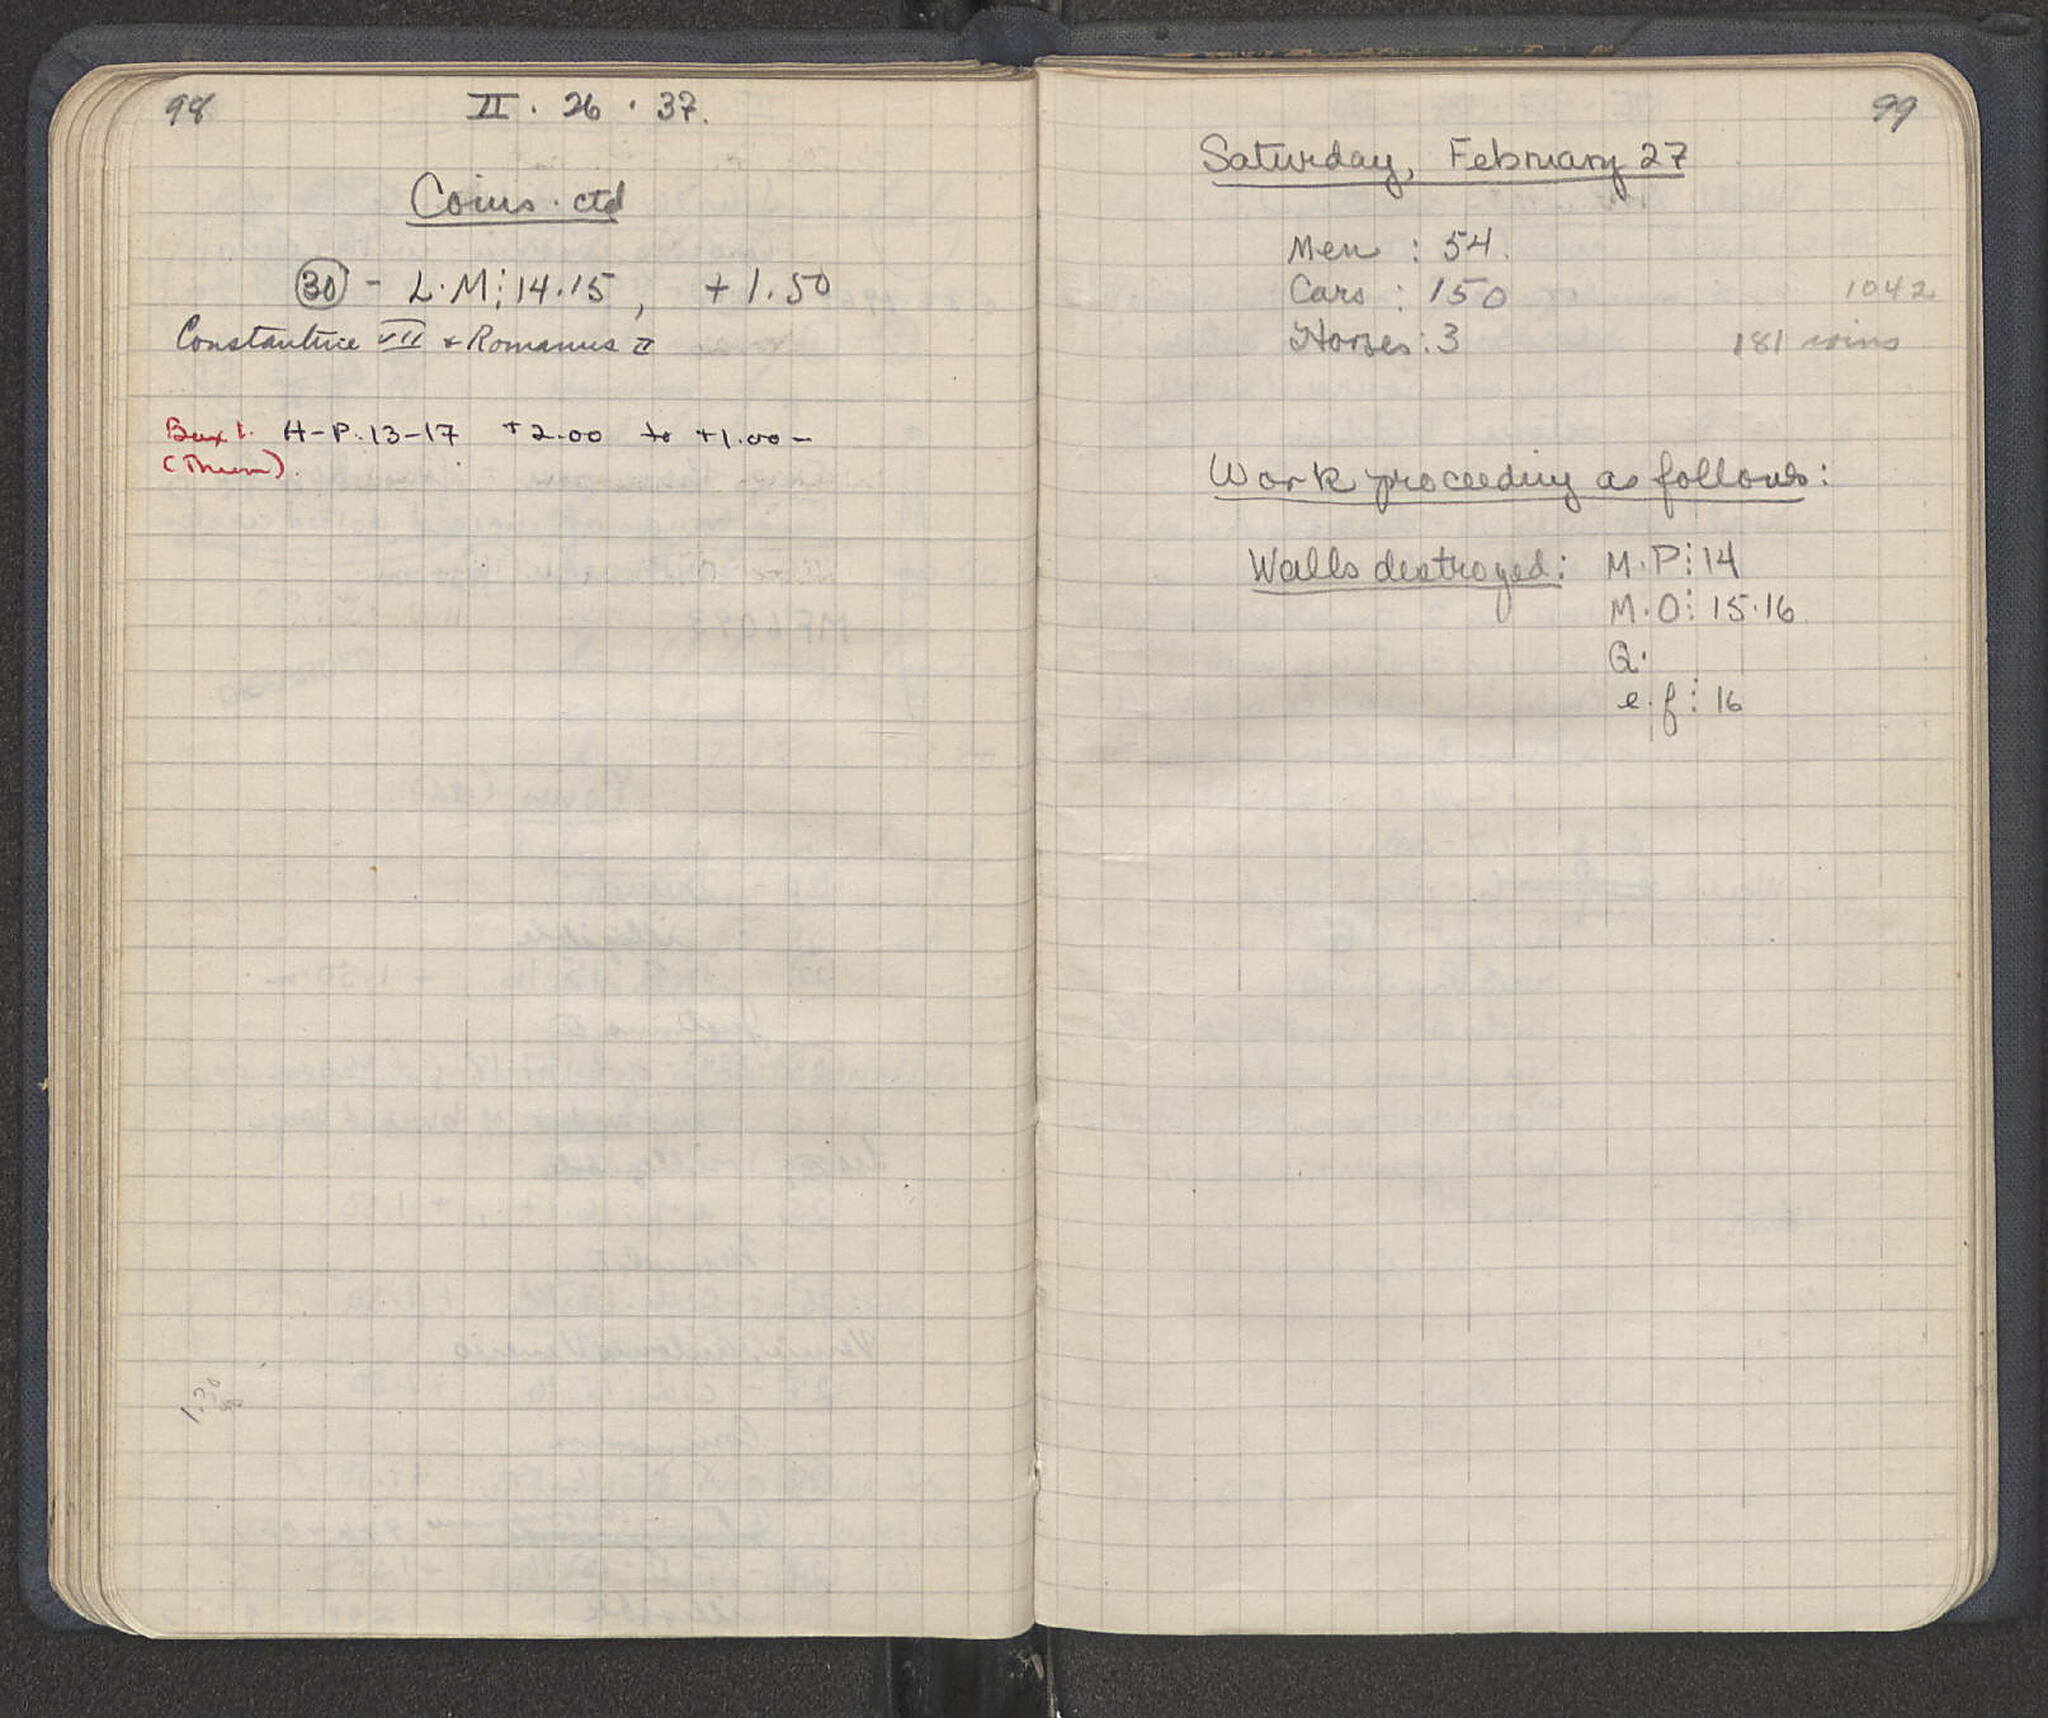 98
II . 26 . 37.
Coins . ctd
30 - L.M: 14.15, + 1.50
Constantine VII + Romanus II
Box 1. H-P. 13-17 +2.00 to +1.00-
(Thrown).
99
Saturday, February 27
Men : 54.
Cars : 150
1042
Horses : 3
181 coins
Work proceeding as follows:
Walls destroyed: M.P: 14
M.O: 15.16
Q.
e.f: 16